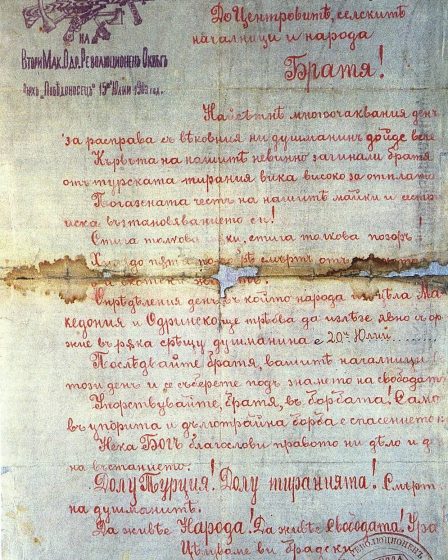 на
Втори Мак. Одр. Революционенъ Окръгъ
"Побѣдоносецъ" 15й Юлий 1903 год.
До Центровитѣ, селскитѣ
началници и народа
Братя!
Най сѣтнѣ многоочаквания день
за расправа съ вѣковния ни душманинъ дойде вече
Кръвьта на нашитѣ невинно загинали братя
отъ турската тирания вика високо за отплата
Погазената честь на нашитѣ майки и сестри
иска възтановяванието си!
Стига толкова ки, стига толкова позоръ!
до пѫти по смърть отъ
Опрѣделения день, въ който народа изъ цѣла Ма
кедония и Одринско, ще трѣбва да излѣзе явно съ ор
жие въ рѫка срѣщу душманина е 20й Юлий......
Послѣдвайте братя, вашитѣ началници
този день и се съберете подъ знамето на свободата
Упорствувайте, братя, въ борбата! Само
въ упорита и дълготрайна борба е спасението н
Нека Богъ благослови правото ни дѣло и де
на въстанието.
Долу Турция! Долу тиранията! Смърть
на душманитѣ.
Да живѣе Народа! Да живѣе Свободата! Ура
Цѣлуваме ви братски
РЕВОЛЮЦИОНЕН